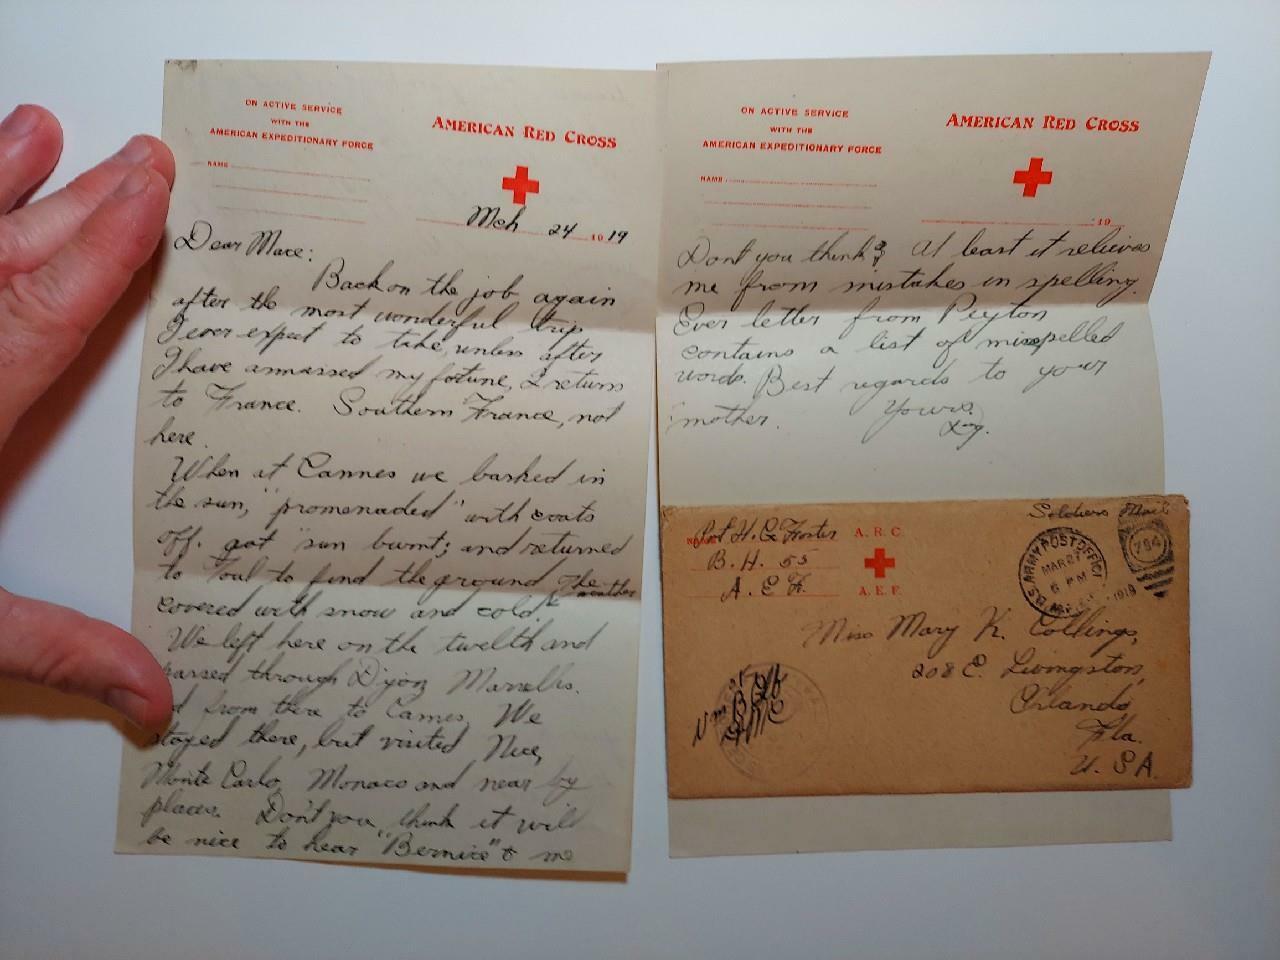 ON ACTIVE SERVICE
WITH THE
AMERICAN EXPEDITIONARY FORCE
NAME
AMERICAN RED CROSS
Mch 24 1919
Dear Mace:
Back on the job again
after the most wonderful trip
I ever expect to take, unless after
I have ammassed my fotune, I return
to France. Southern France, not
here.
When at Cannes we basked in
the sun, "promenaded" with coats
off. got sun burnt; and returned
to Toul to find the ground
covered with snow and cold. The weather
We left here on the twelth and
passed through Dijon
from there to Cannes. We
stayed there, but visited Nice,
Monte Carlo, Monaco and near by
places. Don't you think it will
be nice to hear "Bernice" & me
ON ACTIVE SERVICE
WITH THE
AMERICAN EXPEDITIONARY FORCE
NAME
AMERICAN RED CROSS
19
Dont you think? At least it relieves
me from mistakes in spelling.
Ever letter from Peyton
contains a list of misspelled
words. Best regards to your
mother. Yours.
NAME Pvt H. G. Foster
B. H. 55
A. E. F.
A. R. C
A. E. F.
Soldiers Mail
U.S. ARMY POST OFFICE
MAR 27
6 PM
1919
784
Miss Mary K. Collings,
208 E. Livingston,
Orlando
Fla.
U. S A.